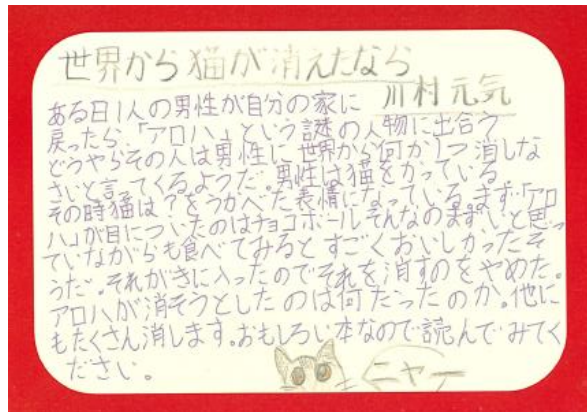 世界から猫が消えたなら
川村元気
ある日1人の男性が自分の家に
戻ったら「アロハ」という謎の人物に出合う
どうやらその人は男性に世界から何か1つ消しな
さいと言ってくるようだ。男性は猫をかっている。
その時猫は？をうかべた表情になっている。まず「アロ
ハ」が目についたのはチョコボールそんなのまずいと思っ
ていながらも食べてみるとすごくおいしかったそ
うだ。それがきに入ったのでそれを消すのをやめた。
アロハが消そうとしたのは何だったのか。他に
もたくさん消します。おもしろい本なので読んでみてく
ださい。
ニャー